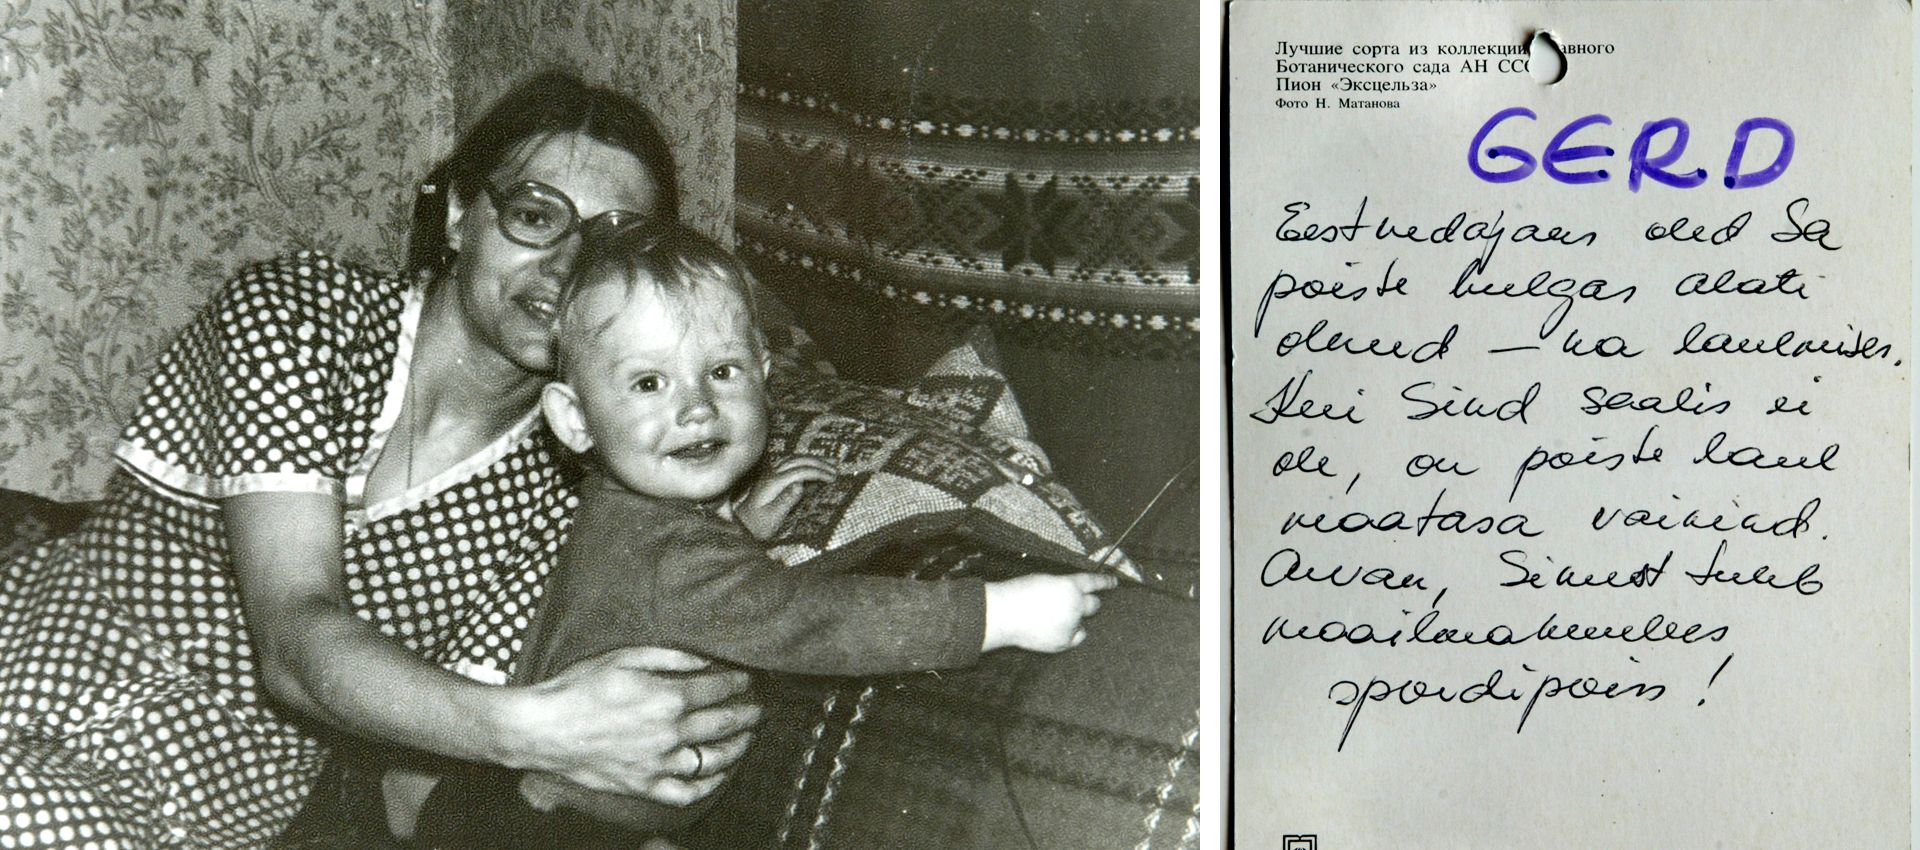 Лучшие сорта из коллекции авного
Ботанического сада АН ССС
Пион «Эксцельза»
Фото Н. Матанова
GERD
Eestvedajaks oled Sa
poiste hulgas alati
olnud – ka laulmises.
Kui Sind saalis ei
ole, on poiste laul
maatasa vaikind.
Arvan, Sinust tuleb
maailmakuulus
spordipoiss!